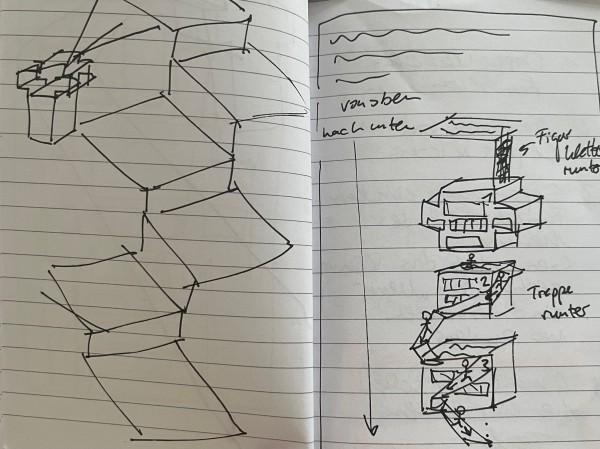 von oben
nach unten
Figur
klettert
runter
1
2
Treppe
runter
3